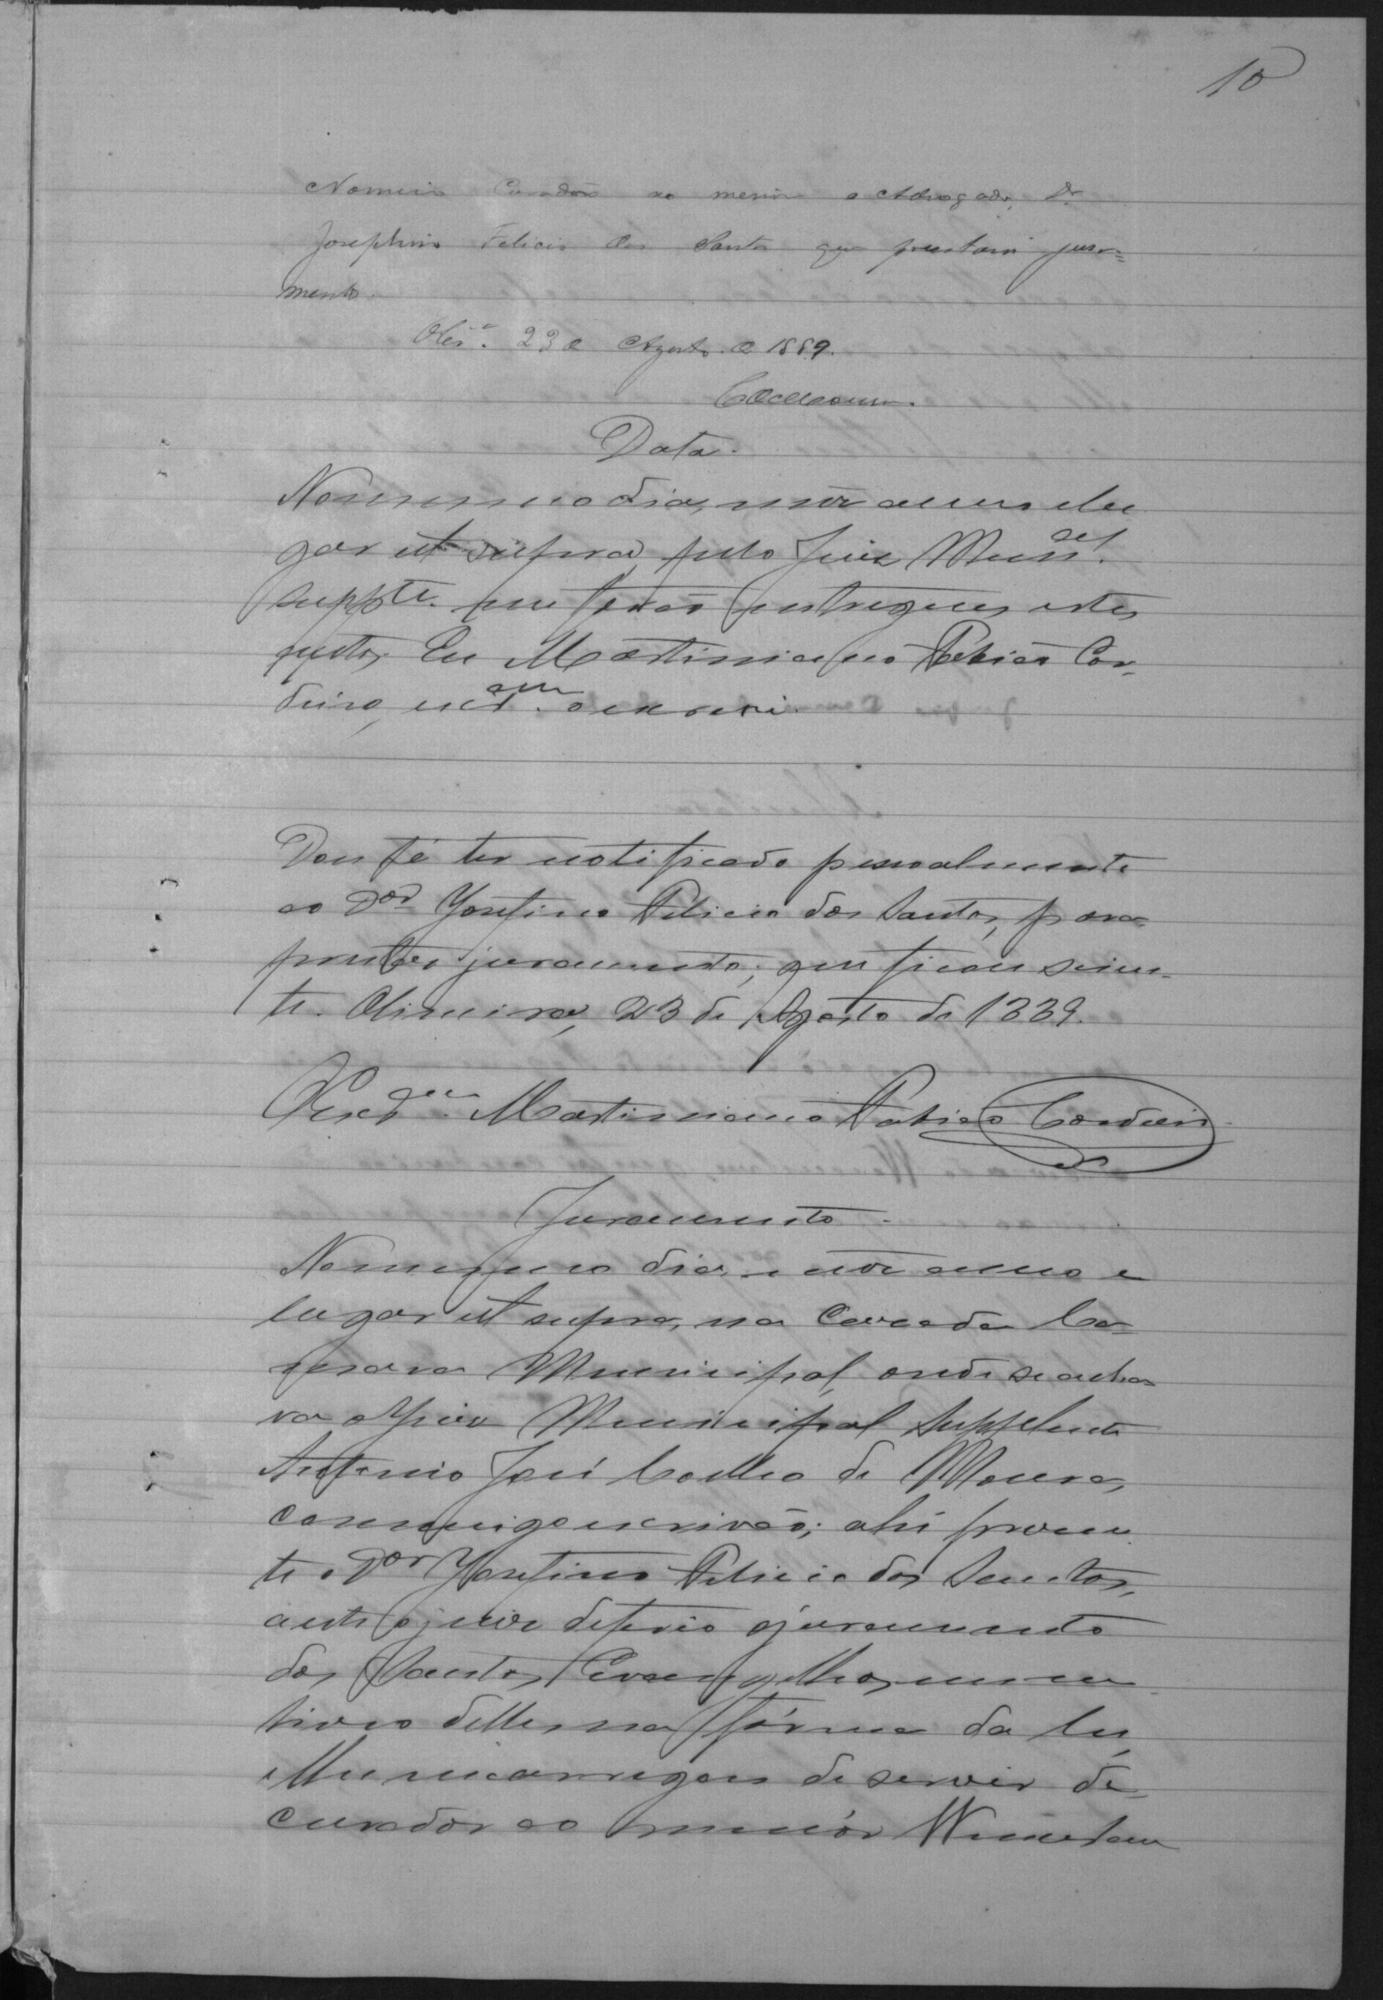 10
Nomeio Curador ao menor o Advogado, Dr.
Josephino Felicio dos Santos que prestará jura=
mento.
23 de Agosto de 1889.
Data.
No mesmo dia, mez anno e lu
gar ut supra, pelo Juiz Munal.
suppte. me forão entregues estes
autos. Eu Martiniano Patricio Cor-
deiro, escram. o escrevi.
Dou fé ter notificado pessoalmente
ao Dor Josefino Felicio dos Santos, para
prestar juramento; que ficou scien-
te. 23 de Agosto de 1889.
O escram. Martiniano Patricio Cordeiro
Juramento.
No mesmo dia, mez anno e
lugar ut supra, na Caza da Ca-
mara Municipal, onde se acha
va o Juiz Municipal Supplente
Antonio José Coelho de Moura,
commigo escrivão; ahi presen
te o Dor Josefino Felicio dos Santos,
a este o juiz deferio o juramento
dos Santos Evangelhos, em um
livro delles na fórma da lei,
e lhe encarregou de servir de
curador ao menór Wenceslau